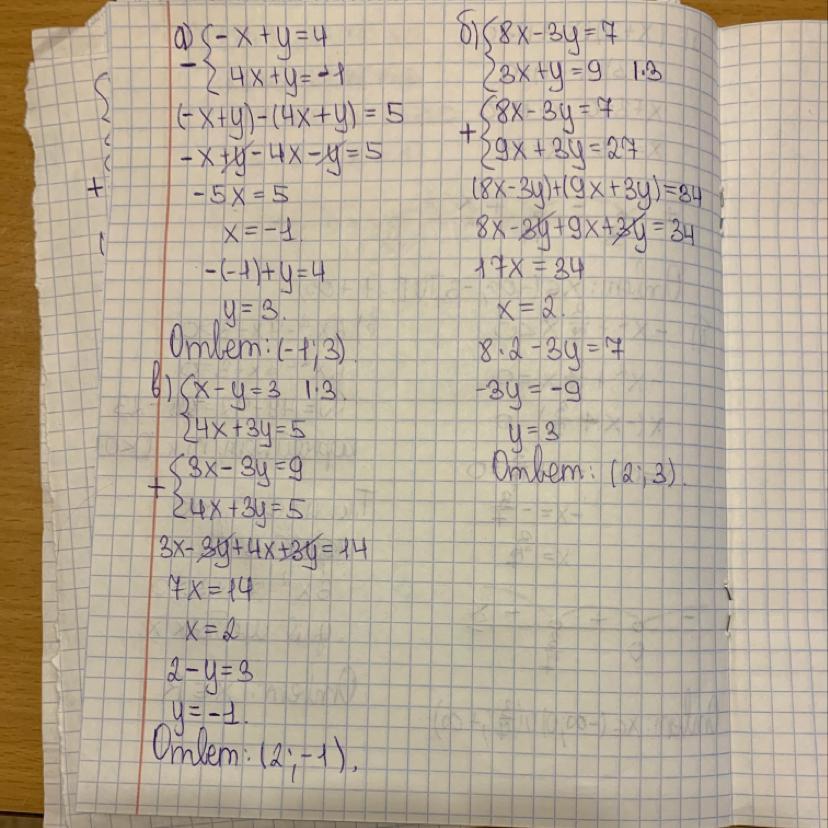 а) {-x+y=4
- {4x+y=-1
(-x+y)-(4x+y)=5
-x+y-4x-y=5
-5x=5
x=-1.
-(-1)+y=4
y=3.
Ответ: (-1; 3).
в) {x-y=3 |·3.
{4x+3y=5
+ {3x-3y=9
{4x+3y=5
3x-3y+4x+3y=14
7x=14
x=2
2-y=3
y=-1.
Ответ: (2; -1).
б) {8x-3y=7
{3x+y=9 |·3
+ {8x-3y=7
{9x+3y=27
(8x-3y)+(9x+3y)=34
8x-3y+9x+3y=34
17x=34
x=2.
8·2-3y=7
-3y=-9
y=3
Ответ: (2; 3).